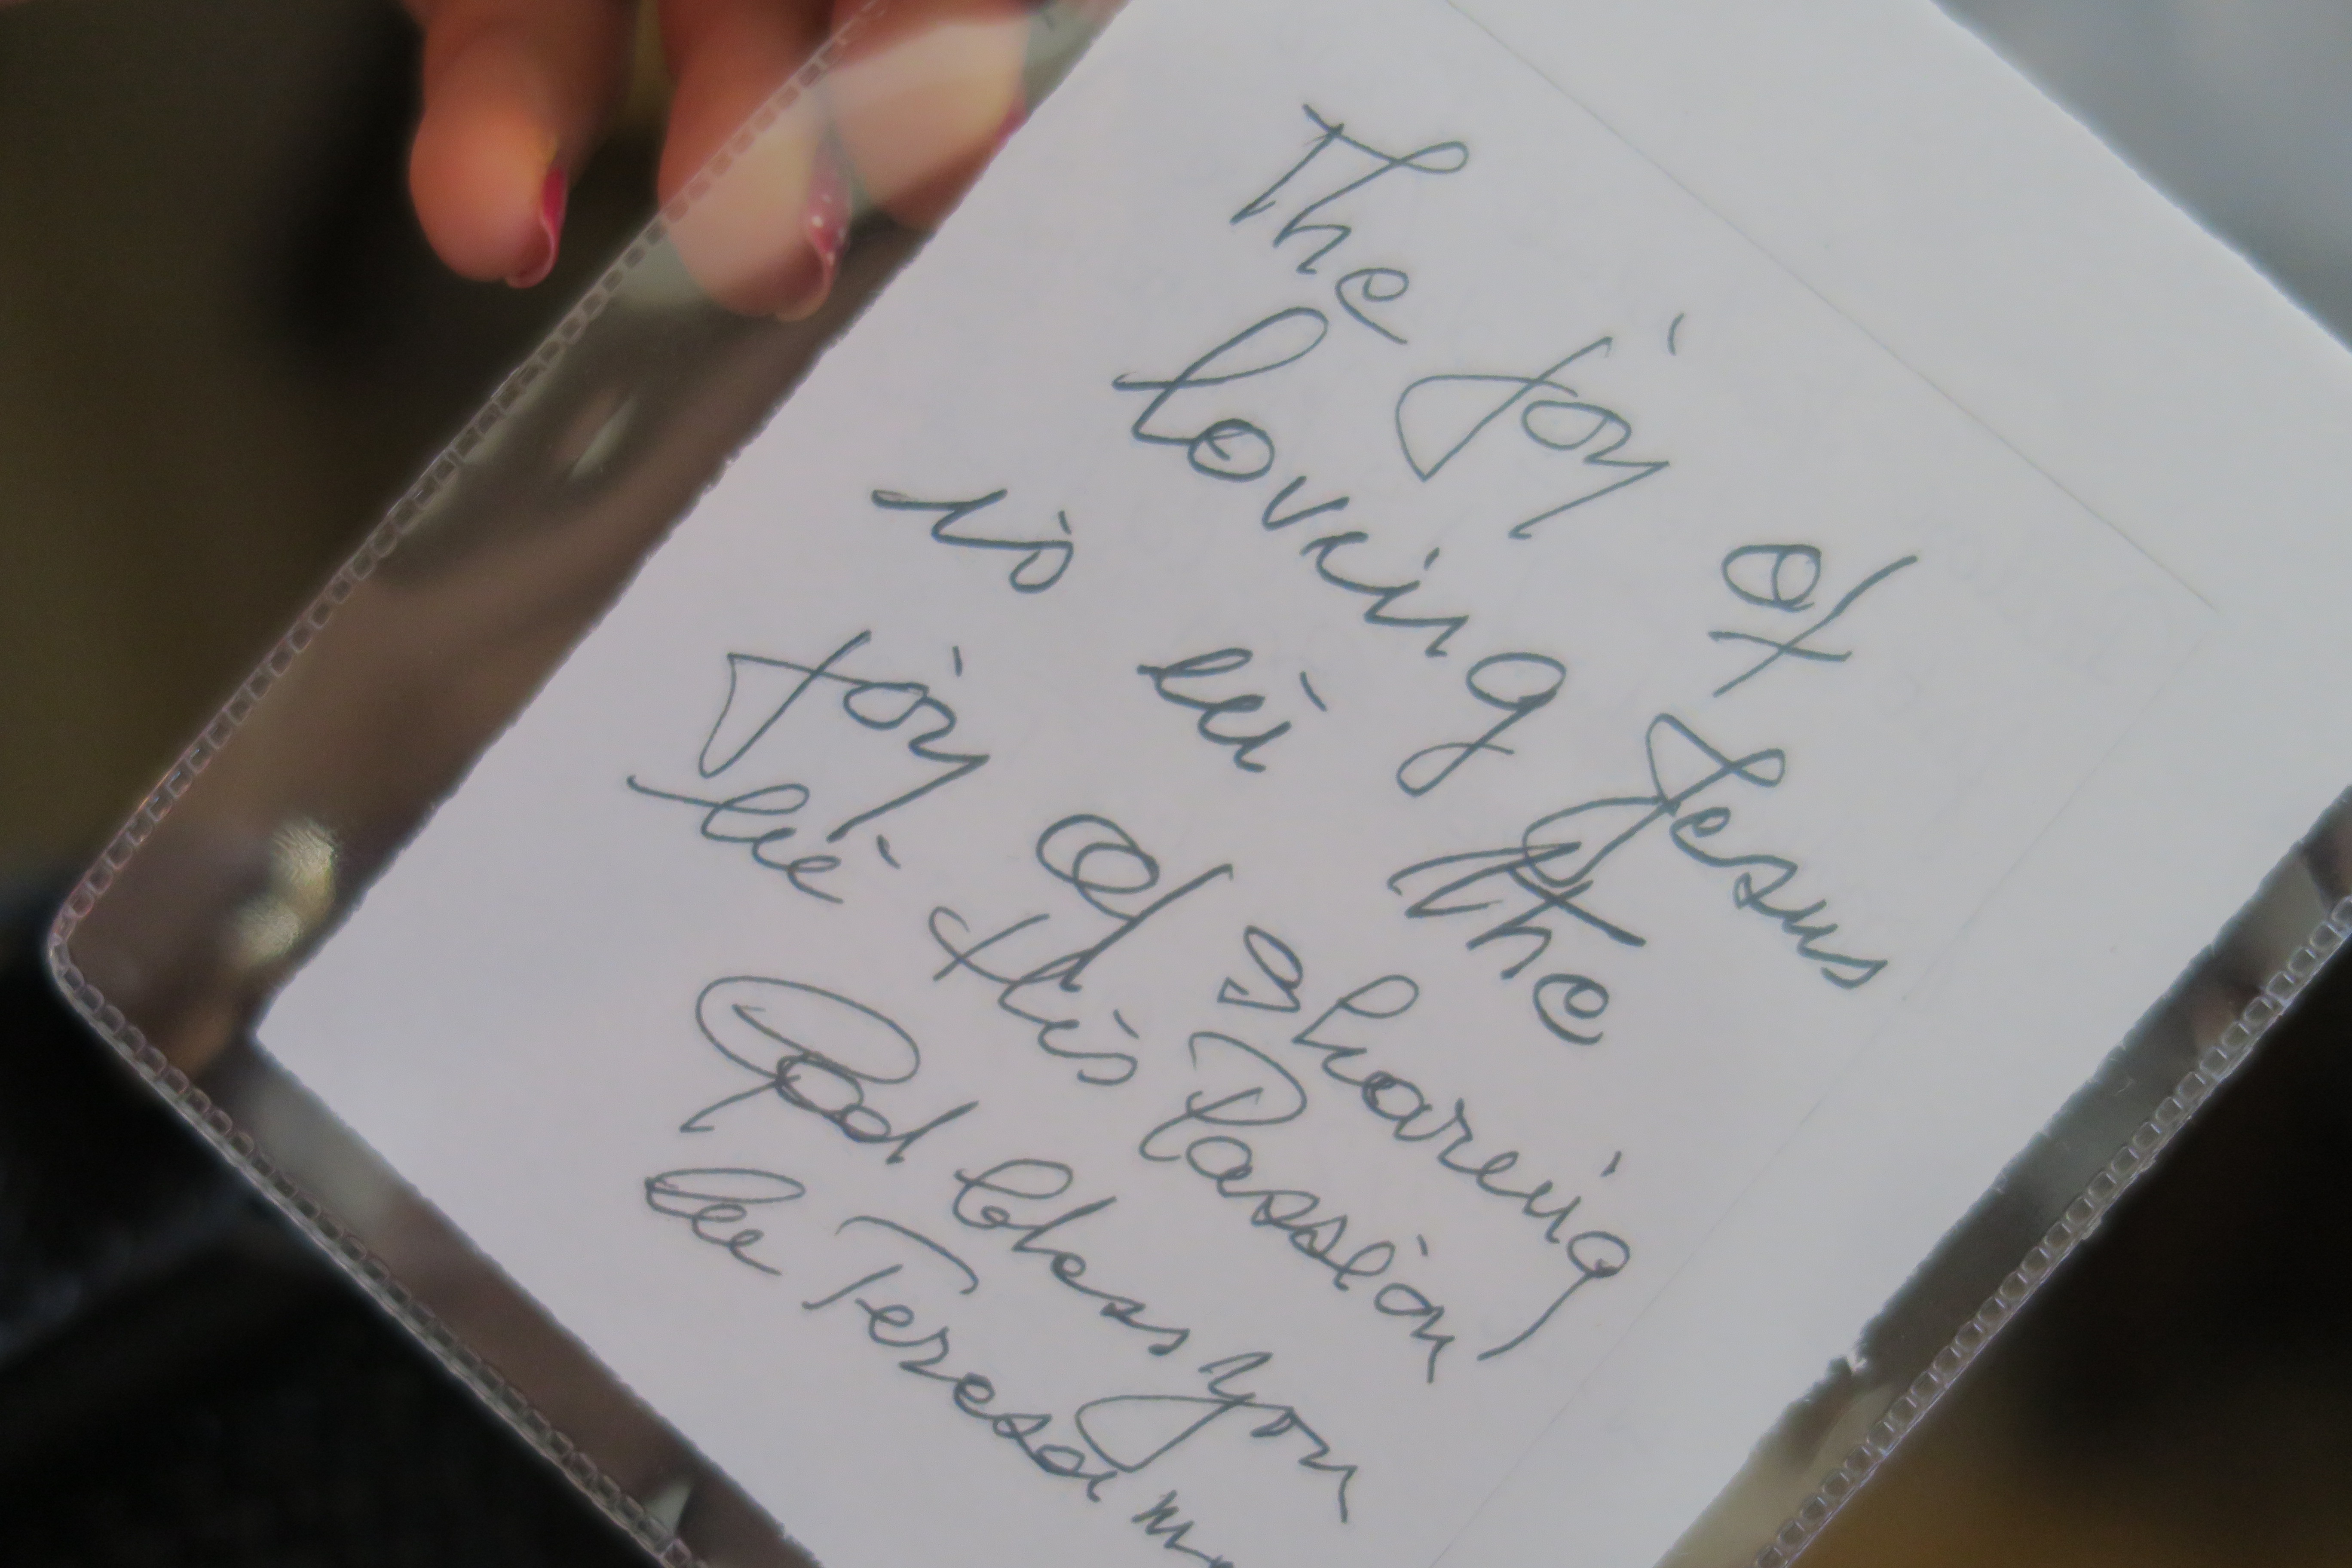 The joy of
loving Jesus
is in the
joy of sharing
in His Passion
God bless you
lee Teresa m